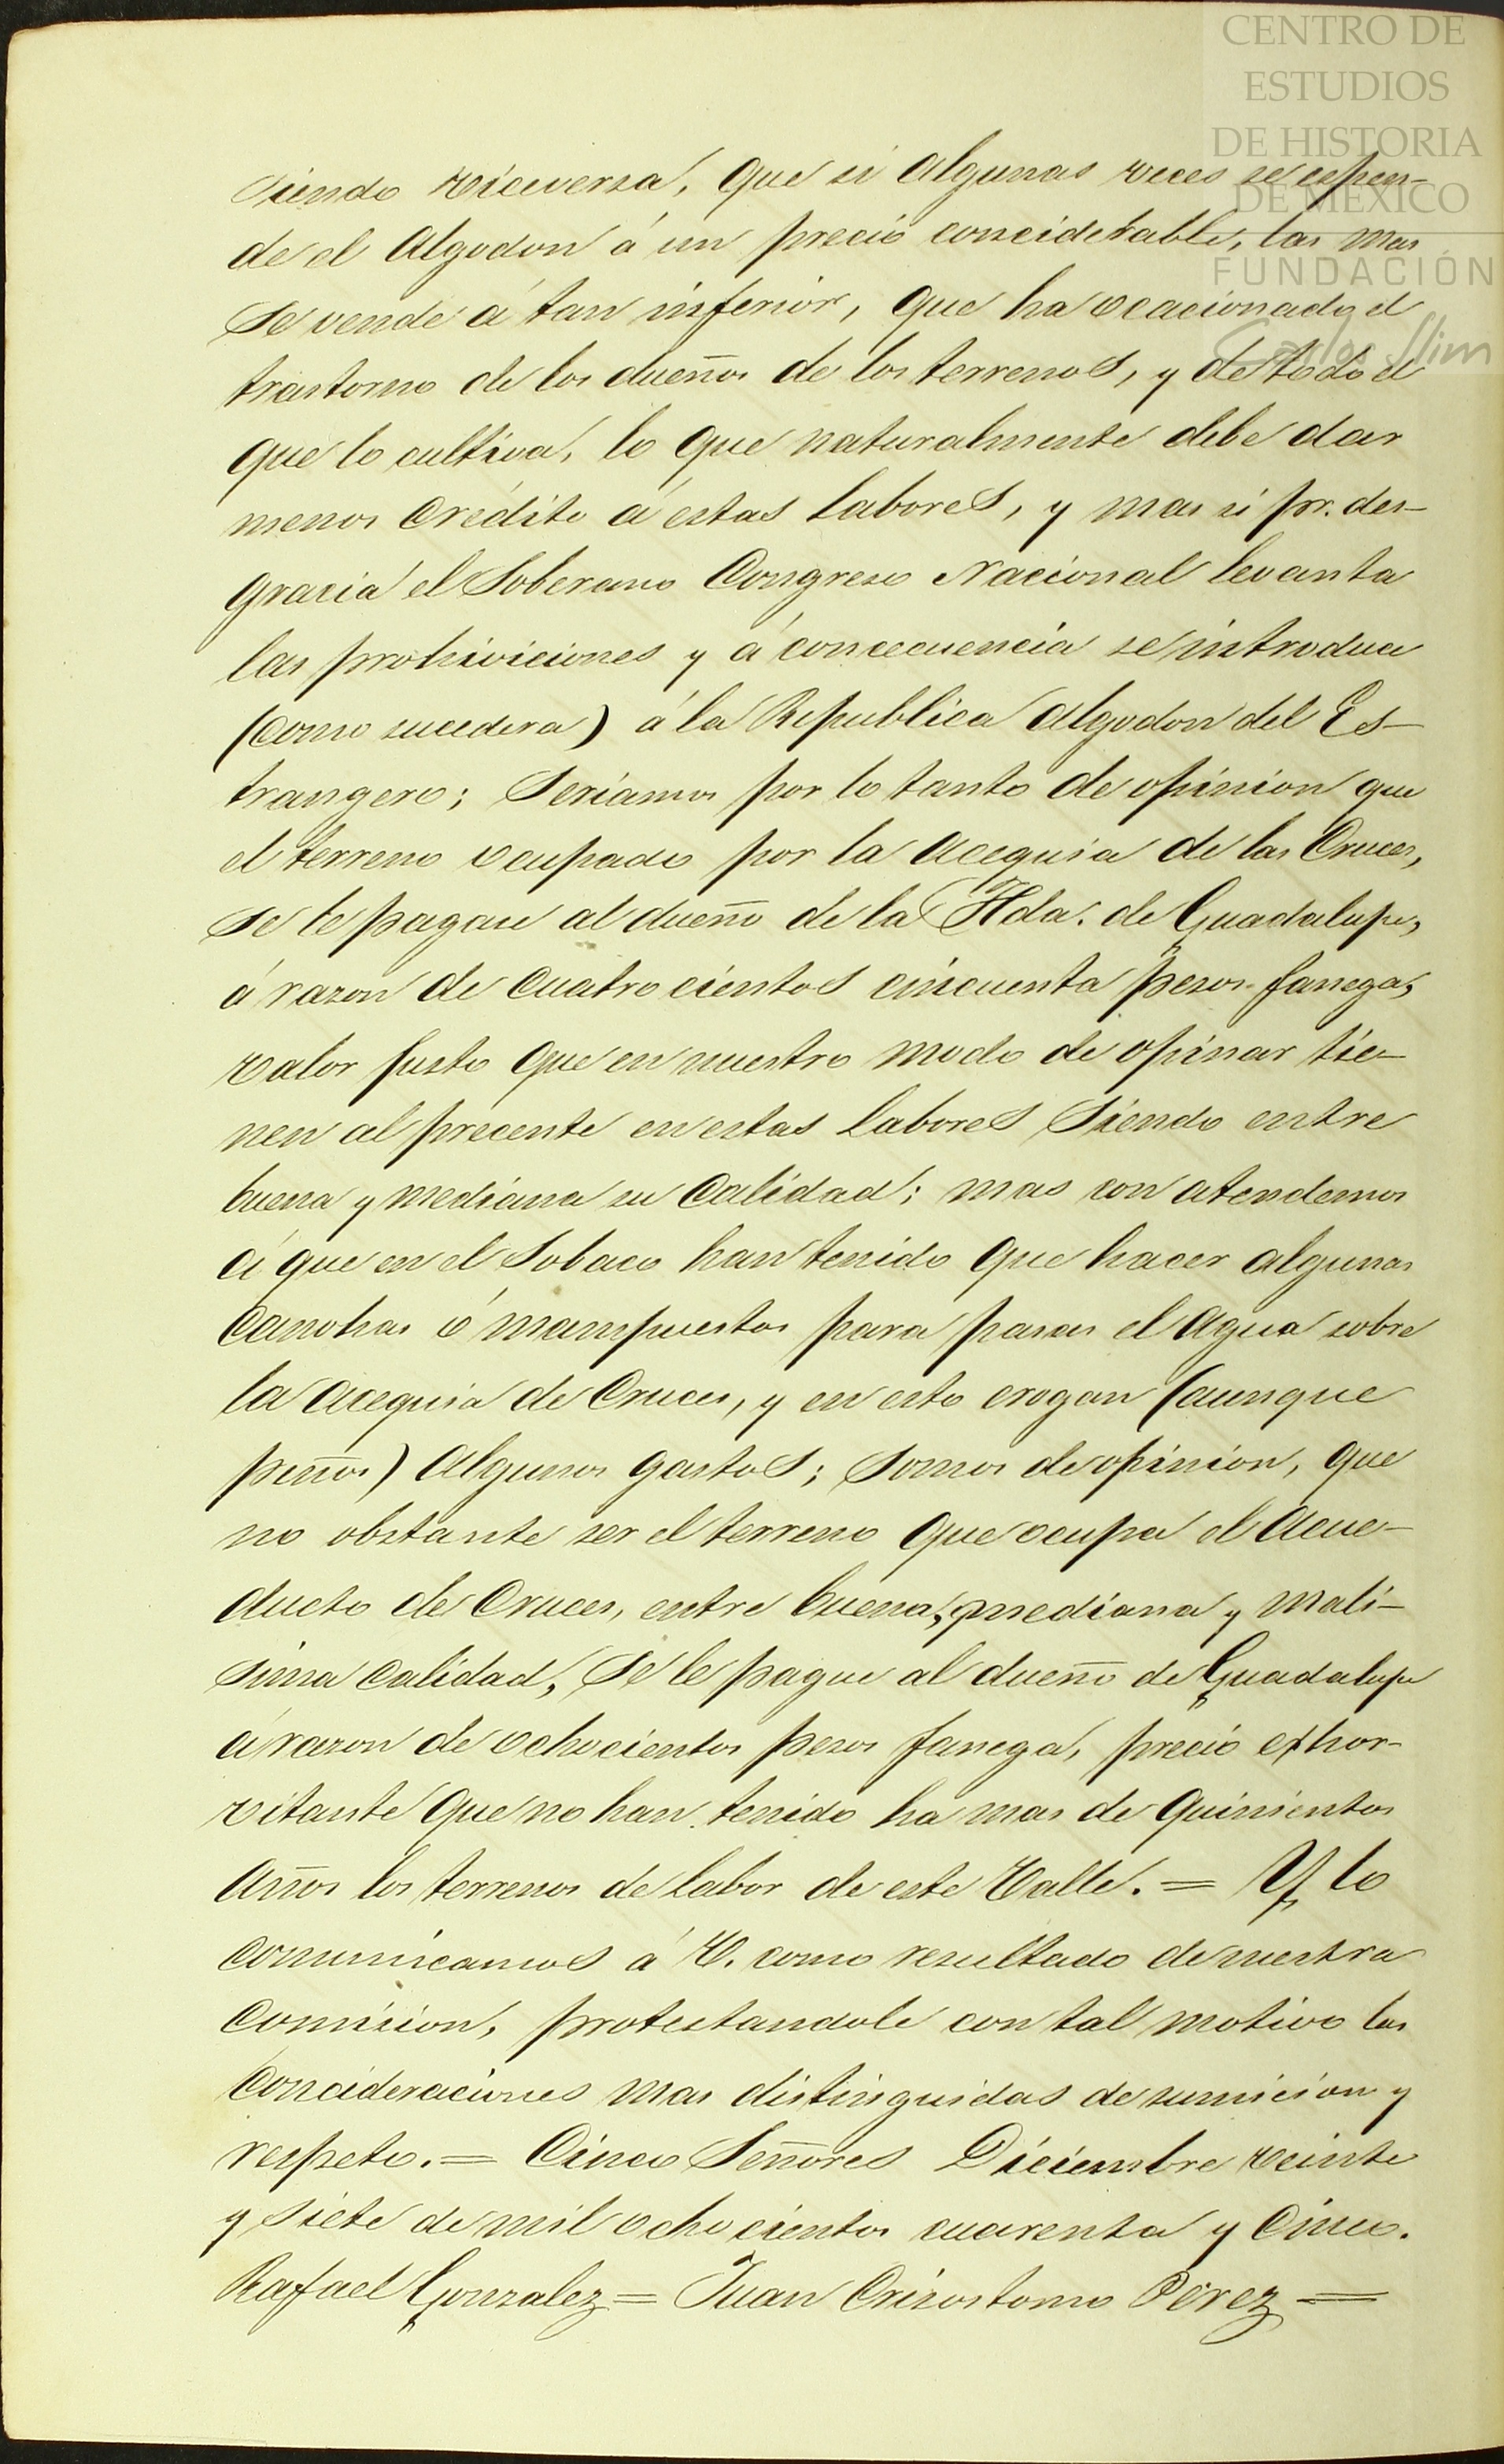 CENTRO DE
ESTUDIOS
DE HISTORIA
DE MÉXICO
FUNDACIÓN
Carlos Slim
siendo viceversa, que si algunas veces se espen-
de el Algodon á un precio conciderable, las mas
se vende á tan inferior, que ha ocacionado el
trastorno de los dueños de los terrenos, y de todo el
que lo cultiva, lo que naturalmente debe dar
menos crédito á estas labores, y mas si pr. des-
gracia el Soberano Congreso Nacional levanta
las prohiviciones y á concecuencia se introduce
(como sucedera) á la Republica algodon del Es-
trangero; Seriamos por lo tanto de opinion que
el terreno ocupado por la acequia de las Cruces,
se le pagase al dueño de la Hda. de Guadalupe,
á razon de cuatrocientos cincuenta pesos fanega,
valor justo que en nuestro modo de opinar tie-
nen al precente en estas labores siendo entre
buena y mediana su calidad; mas con atendemos
á que en el Sobaco han tenido que hacer algunas
Canohas ó mampuestos para pasar el agua sobre
la acequia de Cruces, y en esto erogan (aunque
peños) algunos gastos; somos de opinion, que
no obstante ser el terreno que ocupa el acue-
ducto de Cruces, entre buena, mediana y mali-
sima calidad, se le pague al dueño de Guadalupe
á razon de ochocientos pesos fanega, precio exhor-
vitante que no han tenido ha mas de quinientos
años los terrenos de labor de este Valle. = Y lo
comunicamos á V. como resultado de nuestra
comision, protestandole con tal motivo las
concideraciones mas distinguidas de sumicion y
respeto. = Cinco Señores Diciembre veinte
y siete de mil ochocientos cuarenta y cinco.
Rafael Gonzalez = Juan Crizostomo Pérez =